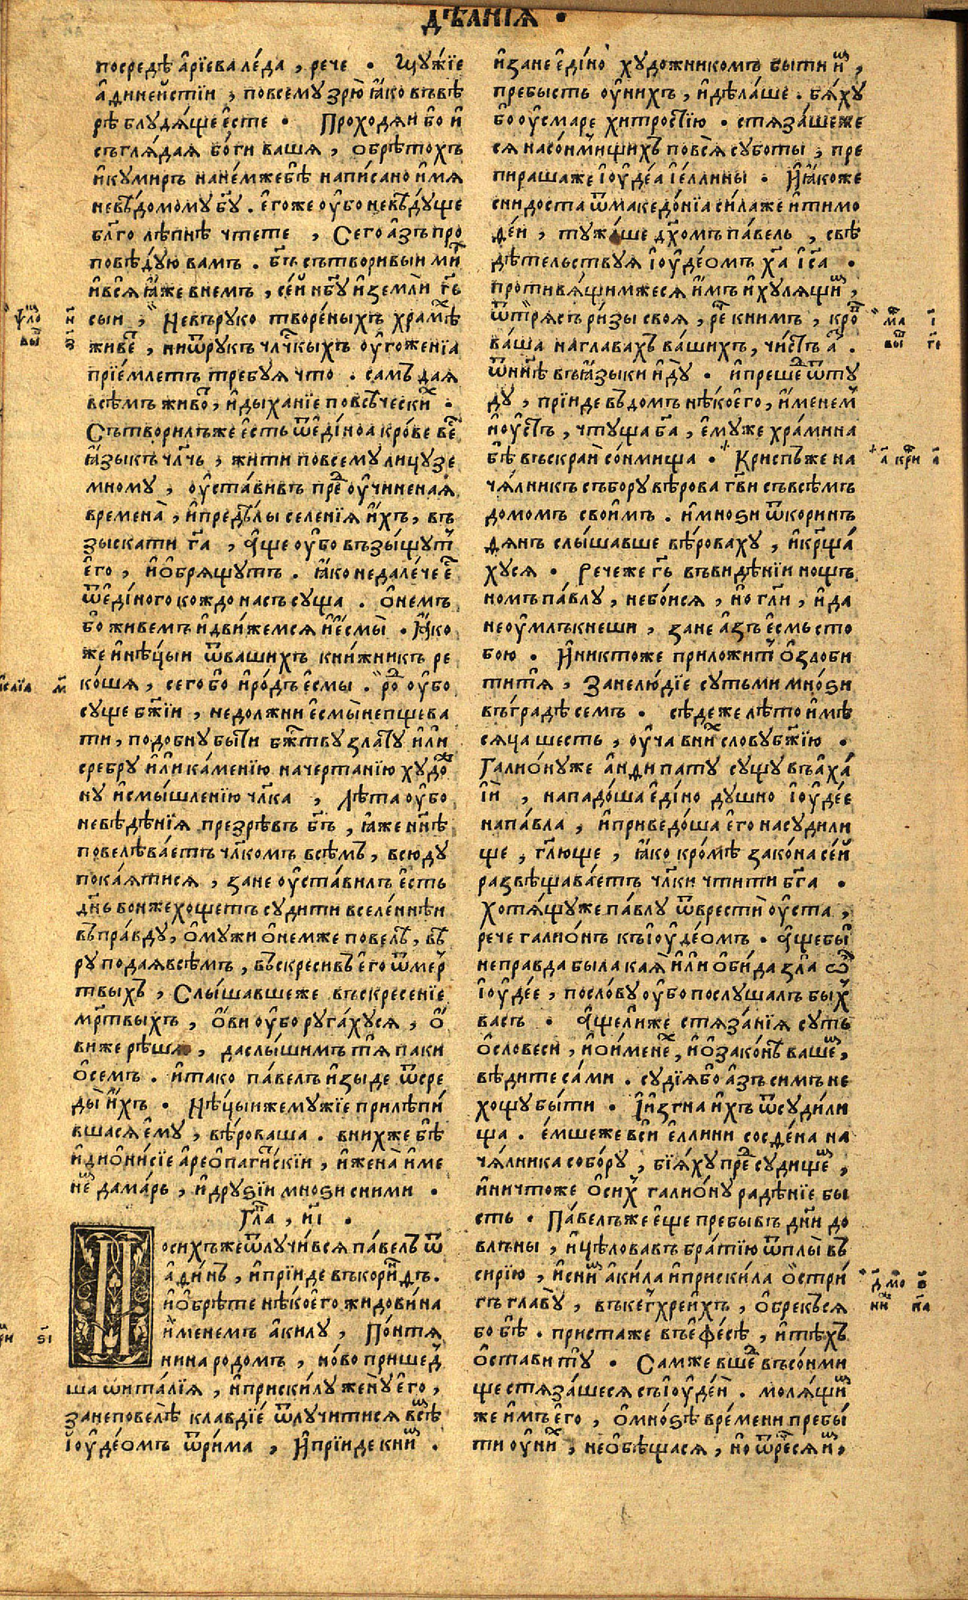 дѣꙗнїꙗ •
посредѣ а҆рїева ле́да , рече • Мꙋжїе
а҆дїнейстїи , повсемꙋ зрю̀ ꙗ҆́ко въвѣ
рѣ блꙋдѧ́ще е҆сте • Проходѧи бо и҆
съглѧ́даѧ бо́ги вашѧ , ѡбрѣтохъ
и҆кꙋмиръ нане́мжебѣ̀ написано и҆́мѧ
невѣ́домомꙋ бг҃ꙋ . е҆гоже оу҆́бо невѣ́дꙋще
бл҃го лѣпнѣ чтете , Сего а҆́зъ про
повѣ́дꙋю вамъ . бг҃ъ сътворивыи ми́р
и҆всѧ̀ ꙗ҆́же внемъ , се́й нб҃ꙋ и҆землѝ гд҃ь
сыи , Невърꙋко творе́ныхъ храмѣ
живе́т , ниѿрꙋкъ чл҃чкыхъ оу҆гоженїа
прїе́млетъ требꙋѧ что . самъ даѧ
всѣмъ живо́т , и҆дыханїе повсѣ́чески́х •
Сътворилъже е҆сть ѿе҆ди́ноѧ кро́ве ве́с
ꙗ҆зыкъ чл҃чь , жити повсемꙋ лицꙋ зе
мномꙋ , оу҆ставивъ пред оу҆чиненаѧ
времена̀ , и҆предѣ́лы селенїѧ и҆́хъ , въ
зыскати гд҃а , а҆́ще оу҆́бо възы́щꙋт
е҆го , и҆ѡбрѧщꙋтъ . ꙗ҆́ко недале́че е҆ст
ѿе҆ди́ного кождо насъ сꙋща . ѡ҆немъ
бо живемъ и҆дви́жемсѧ и҆е҆смы̀ . Ꙗ҆́ко
же и҆нѣ́цыи ѿвашихъ кни́жникъ ре
кошѧ , сего бо и҆ро́дъ е҆смы . ро́д оу҆́бо
сꙋще бж҃їи , недолжни е҆смы̀ непщева
ти , подобнꙋ бы́ти бж҃ествꙋ зла́тꙋ и҆́ли
сребрꙋ и҆́ли ка́менїю начертанїю хꙋдо́ж
нꙋ и҆смышленїю чл҃ка , Лѣта оу҆́бо
невѣ́дѣнїѧ презрѣвъ бг҃ъ , ꙗ҆́же нн҃ѣ
повелѣва́етъ чл҃комъ всѣмъ , всюдꙋ
пока́ѧтисѧ , зане оу҆ставилъ е҆сть
дн҃ь воньжехощетъ сꙋдити вселе́ннѣи
въпра́вдꙋ , ѡ҆мꙋжи ѡ҆немже повелѣ̀ , вѣ́
рꙋ подаѧ всѣмъ , въскресивъ е҆го ѿме́р
твыхъ , Слы́шавшеже въскресенїе
мр҃твыхъ , ѡ҆́ви оу҆́бо рꙋга́хꙋсѧ , ѡ҆́
виже рѣшѧ , даслы́шимъ тѧ̀ паки
ѡ҆семъ . и҆тако па́велъ и҆зы́де ѿсре
ды̀ и҆́хъ . Нѣ́цыиже мꙋжїе прилѣпи́
вшасѧ е҆мꙋ , вѣ́роваша . вни́хже бѣ̀
и҆дїони́сїе а҆реѡпаги́скїи , и҆жена̀ и҆́ме
не́м дама́рь , и҆дрꙋѕїи мноѕи сними .
Гл҃ва , и҃і .
Посихъже ѿлꙋчи́всѧ па́велъ ѿ
а҆ди́нъ , и҆прїиде въкорин́дъ .
и҆ѡбрѣте нѣ́коего жидови́на
и҆́менемъ а҆килꙋ , По́нтѧ
нина родомъ , но́во прише́д
ша ѡ҆италїѧ , и҆прискилꙋ женꙋ̀ е҆го ,
занеповелѣ̀ клавдїе ѿлꙋчитисѧ всѣ́м
і҆оу҆де́омъ ѿри́ма , И҆прїиде кни́м .
и҆зане е҆ди́но хꙋдожникомъ быти и҆́м ,
пребысть оу҆нихъ , и҆дѣ́лаше . бѧ́хꙋ
бо оу҆смаре хитростїю . стѧза́шеже
сѧ насо́нмищихъ повсѧ̀ сꙋботы , пре
пирашаже і҆оу҆де́а і҆е́ллины . И҆ꙗ҆́коже
снидоста ѿмакедо́нїа си́лаже и҆тимо
ѳе́й , тꙋжа́ше дх҃омъ па́вель , свѣ
дѣтельствꙋѧ і҆оу҆де́омъ хс҃а і҆с҃а .
противѧ́щимжесѧ и҆́мъ и҆хꙋлѧ́щи́м ,
ѿтрѧ́съ ри́зы своѧ , ре́ч книмъ , кро́в
ва́ша наглавахъ ва́шихъ , чи́стъ а҆́з .
ѿнн҃ѣ въꙗ҆зыки и҆дꙋ̀ . и҆преше́д ѿтꙋ
дꙋ , прїиде въдомъ нѣ́коего , и҆́менем
и҆оу҆стъ , чтꙋща бг҃а , е҆мꙋже хра́мина
бѣ̀ въскраи со́нмища . Криспъже на
чѧ́лникъ събо́рꙋ вѣ́рова гд҃ви съвсѣ́мъ
домомъ свои́мъ . и҆мноѕи ѿкоринъ
дѧнъ слы́шавше вѣ́роваху , и҆кр҃ща́
хꙋсѧ . Речеже гд҃ь въвидѣ́нїи нощъ
номъ па́влꙋ , небо́исѧ , но гл҃и , и҆да
неоу҆млъкнеши , зане а҆́зъ е҆смь сто
бою . И҆никтоже приложит ѡ҆зло́би
титѧ̀ , Занелю́дїе сꙋтьми мно́ѕи
въгра́дѣ семъ . сѣ́деже лѣ́то и҆мѣ
сѧца шесть , оу҆ча вни́х словꙋбж҃їю .
Галио́нꙋже а҆нѳипатꙋ сꙋщꙋ въа҆ха́
їй , нападо́ша е҆ди́но дꙋшно і҆оу҆де́е
напа́вла , и҆приведо́ша е҆го насꙋди́ли
ще , гл҃юще , ꙗ҆́ко кро́мѣ зако́на се́й
развѣщава́етъ чл҃ки чти́ти бг҃а .
хотѧ́щꙋже па́влꙋ ѿврестѝ оу҆ста ,
рече галио́нъ къі҆оу҆де́омъ . а҆́щебы
неправда была каѧ̀ и҆́ли ѡ҆би́да зла̀ ѡ҆
і҆оу҆де́е , посло́вꙋ оу҆́бо послꙋшалъ бых
васъ . а҆́щелиже стѧза́нїѧ сꙋть
ѡ҆словеси , и҆ои҆мене́х , и҆ѡ҆зако́нѣ ва́ше́м ,
вѣ́дите са́ми . сꙋдїѧ́бо а҆́зъ симъ не
хощꙋ быти . И҆и҆згна и҆́хъ ѿсꙋди́ли
ща . е҆́мшеже вси е҆́ллини сосѳе́на на
чѧ́лника собо́рꙋ , бїѧ́хꙋ пред сꙋди́ще́м ,
и҆ничтоже ѡ҆си́х галио́нꙋ раде́нїе бы
сть . Па́велъже е҆́ще пребывъ дни до
влъны , и҆цѣ́ловавъ бра́тїю ѿплы̀ въ
сирїю , и҆сни́м а҆кила и҆прискила ѡ҆стри́
гъ главꙋ̀ , въкегхре́ихъ , ѡ҆брекъсѧ
бо бѣ̀ . пристаже въе҆фе́сѣ , и҆тѣ́хъ
ѡ҆стави тꙋ̀ . Самже вше́д въсо́нми
ще стѧза́шесѧ съі҆оу҆де́й . молѧ́щи́м
же и҆́мъ е҆го , ѡ҆мно́ѕѣ вре́мени пребы́
ти оу҆ни́х , необѣщасѧ , но ѿре́чесѧ и҆́м ,